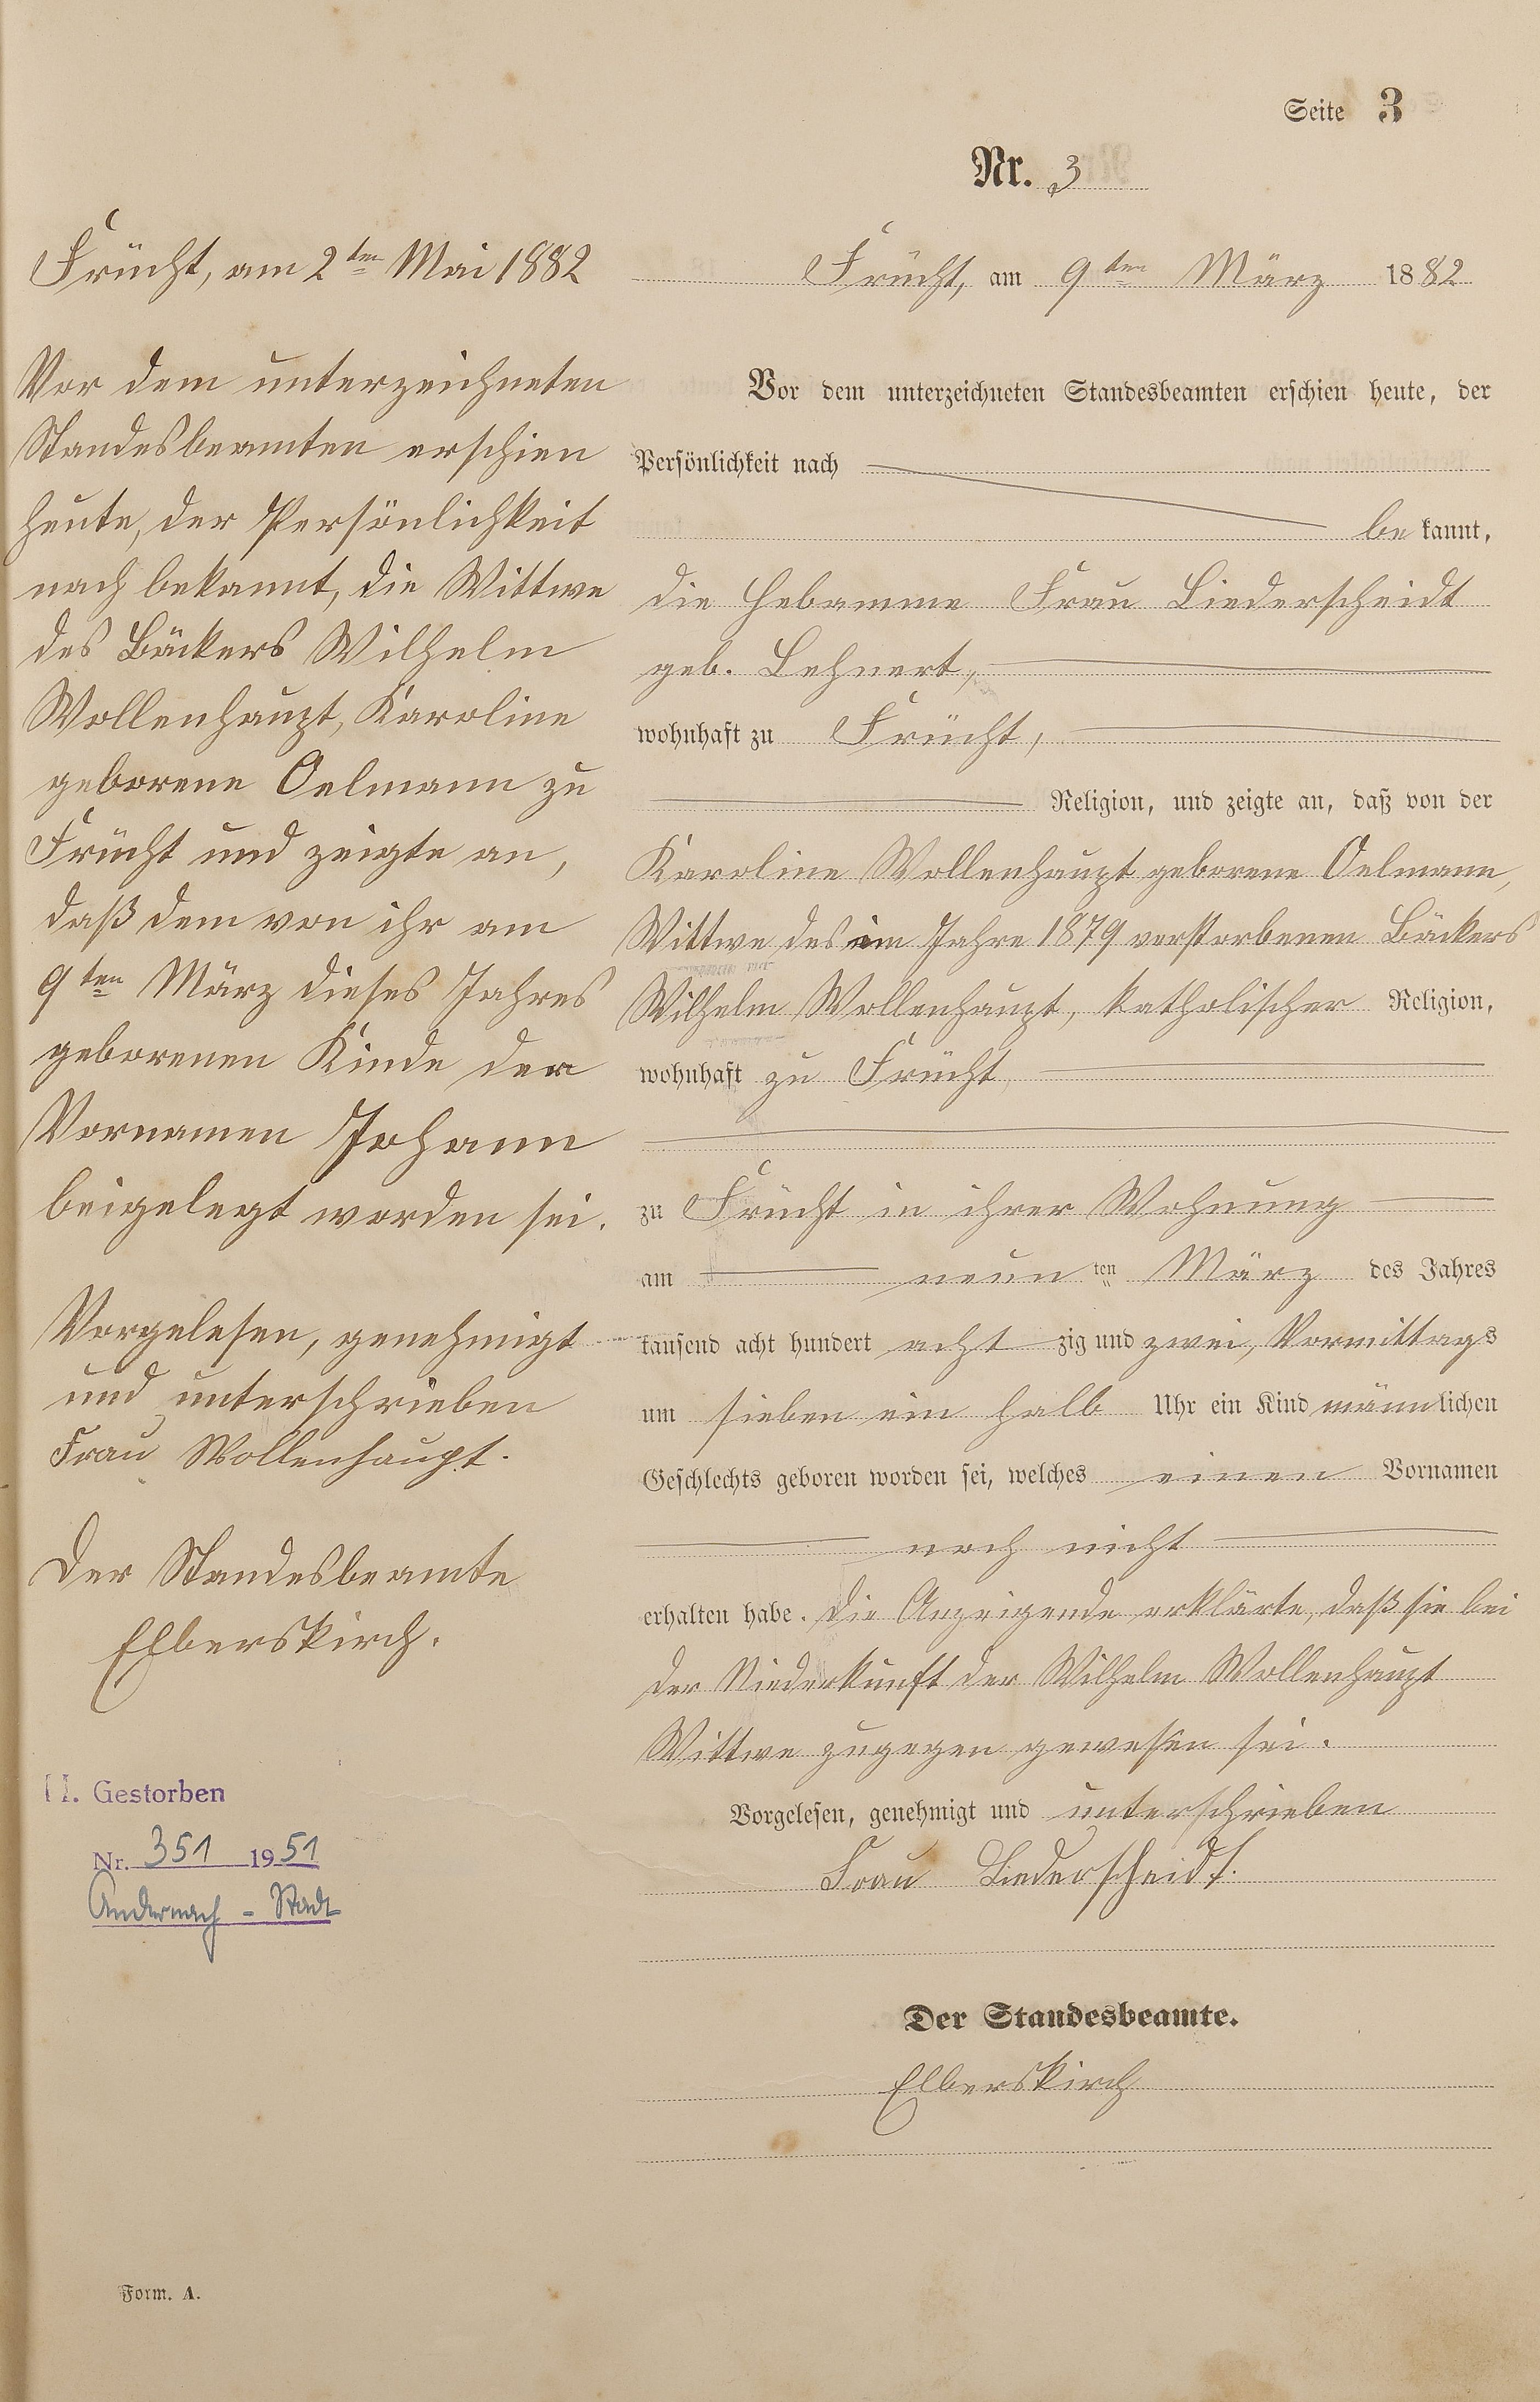 Seite 3
Nr. 3
Frücht, am 2ten Mai 1882
Vor dem unterzeichneten
Standesbeamten erschien
heute, der Persönlichkeit
nach bekannt, die Wittwe
des Bäckers Wilhelm
Wollenhaupt, Karoline
geborene Oelmann zu
Frücht und zeigte an,
daß dem von ihr am
9ten März dieses Jahres
geborenen Kinde der
Vornamen Johann
beigelegt worden sei.
Vorgelesen, genehmigt
und unterschrieben
Frau Wollenhaupt.
Der Standesbeamte
Elberskirch.
II. Gestorben
Nr. 351 1951
Andernach - Stadt
Form. A.
Frücht, am 9ten März 1882
Vor dem unterzeichneten Standesbeamten erschien heute, der
Persönlichkeit nach
bekannt,
die Hebamme Frau Liederscheidt
geb. Lehnert,
wohnhaft zu Frücht,
Religion, und zeigte an, daß von der
Karoline Wollenhaupt geborene Oelmann,
Wittwe des im Jahre 1879 verstorbenen Bäckers
Wilhelm Wollenhaupt, katholischer Religion,
wohnhaft zu Frücht
zu Frücht in ihrer Wohnung
am neunten März des Jahres
tausend acht hundert achtzig und zwei, Vormittags
um sieben ein halb Uhr ein Kind männlichen
Geschlechts geboren worden sei, welches einen Vornamen
noch nicht
erhalten habe. Die Anzeigende erklärte, daß sie bei
der Niederkunft der Wilhelm Wollenhaupt
Wittwe zugegen gewesen sei.
Vorgelesen, genehmigt und unterschrieben
Frau Liederscheidt.
Der Standesbeamte.
Elberskirch